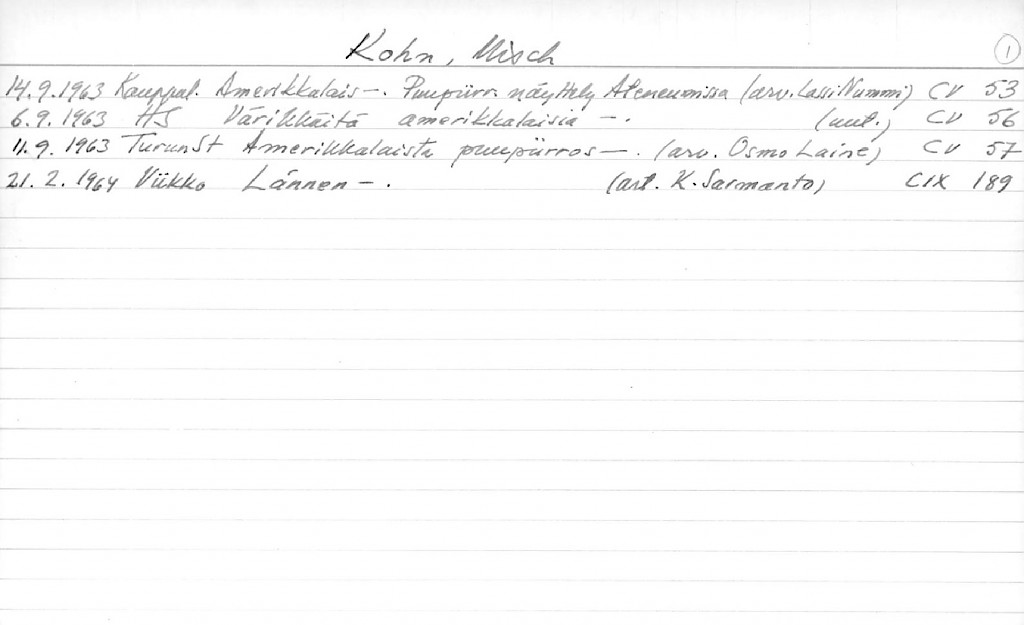 Kohn, Misch 1
14.9.1963 Kauppal. Amerikkalais—. Puupiirr. näyttely Ateneumissa (arv. Lassi Nummi) CV 53
6.9.1963 HS Värikkäitä amerikkalaisia —. (uut.) CV 56
11.9.1963 TurunSt Amerikkalaista puupiirros—. (arv. Osmo Laine) CV 57
21.2.1964 Viikko Lännen —. (art. K. Sarmanto) CIX 189